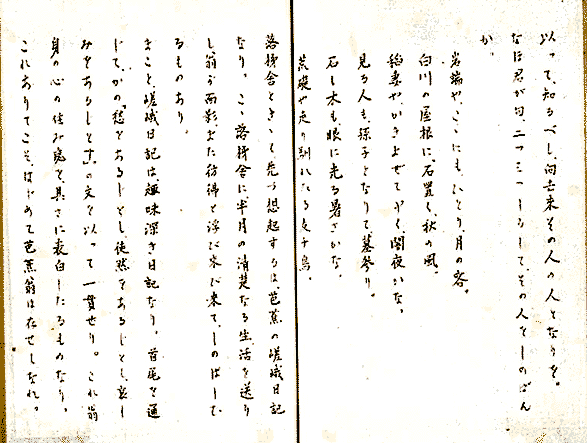 以って、知るべし、向去来その人の人となりを。
なほ君が句、二つ三つしるして、その人をしのばん
か。
岩端や、ここにもひとり、月の客。
白川の屋根に、石置く、秋の風。
稲妻や、かきまぜて行く、闇夜かな。
見る人も、孫子となりて、墓参り。
石も木も、眼に光る暑さかな。
荒磯や走り馴れたる友千鳥。
落柿舎ときく、先づ想起するは、芭蕉の嵯峨日記
なり。こゝ落柿舎に半月の清楚なる生活を送り
し翁が面影、また彷彿と浮び来び来て、しのばしむ
るものあり。
まこと、嵯峨日記は、趣味深き日記なり。首尾を通
じて、かの「愁をあるじとし、徒然をあるじとし、哀し
みをあるじと」の文を以って一貫せり。これ翁
身の心の住み家を、具さに表白したるものなり。
これありてこそ、はじめて芭蕉翁は在せしなれ。